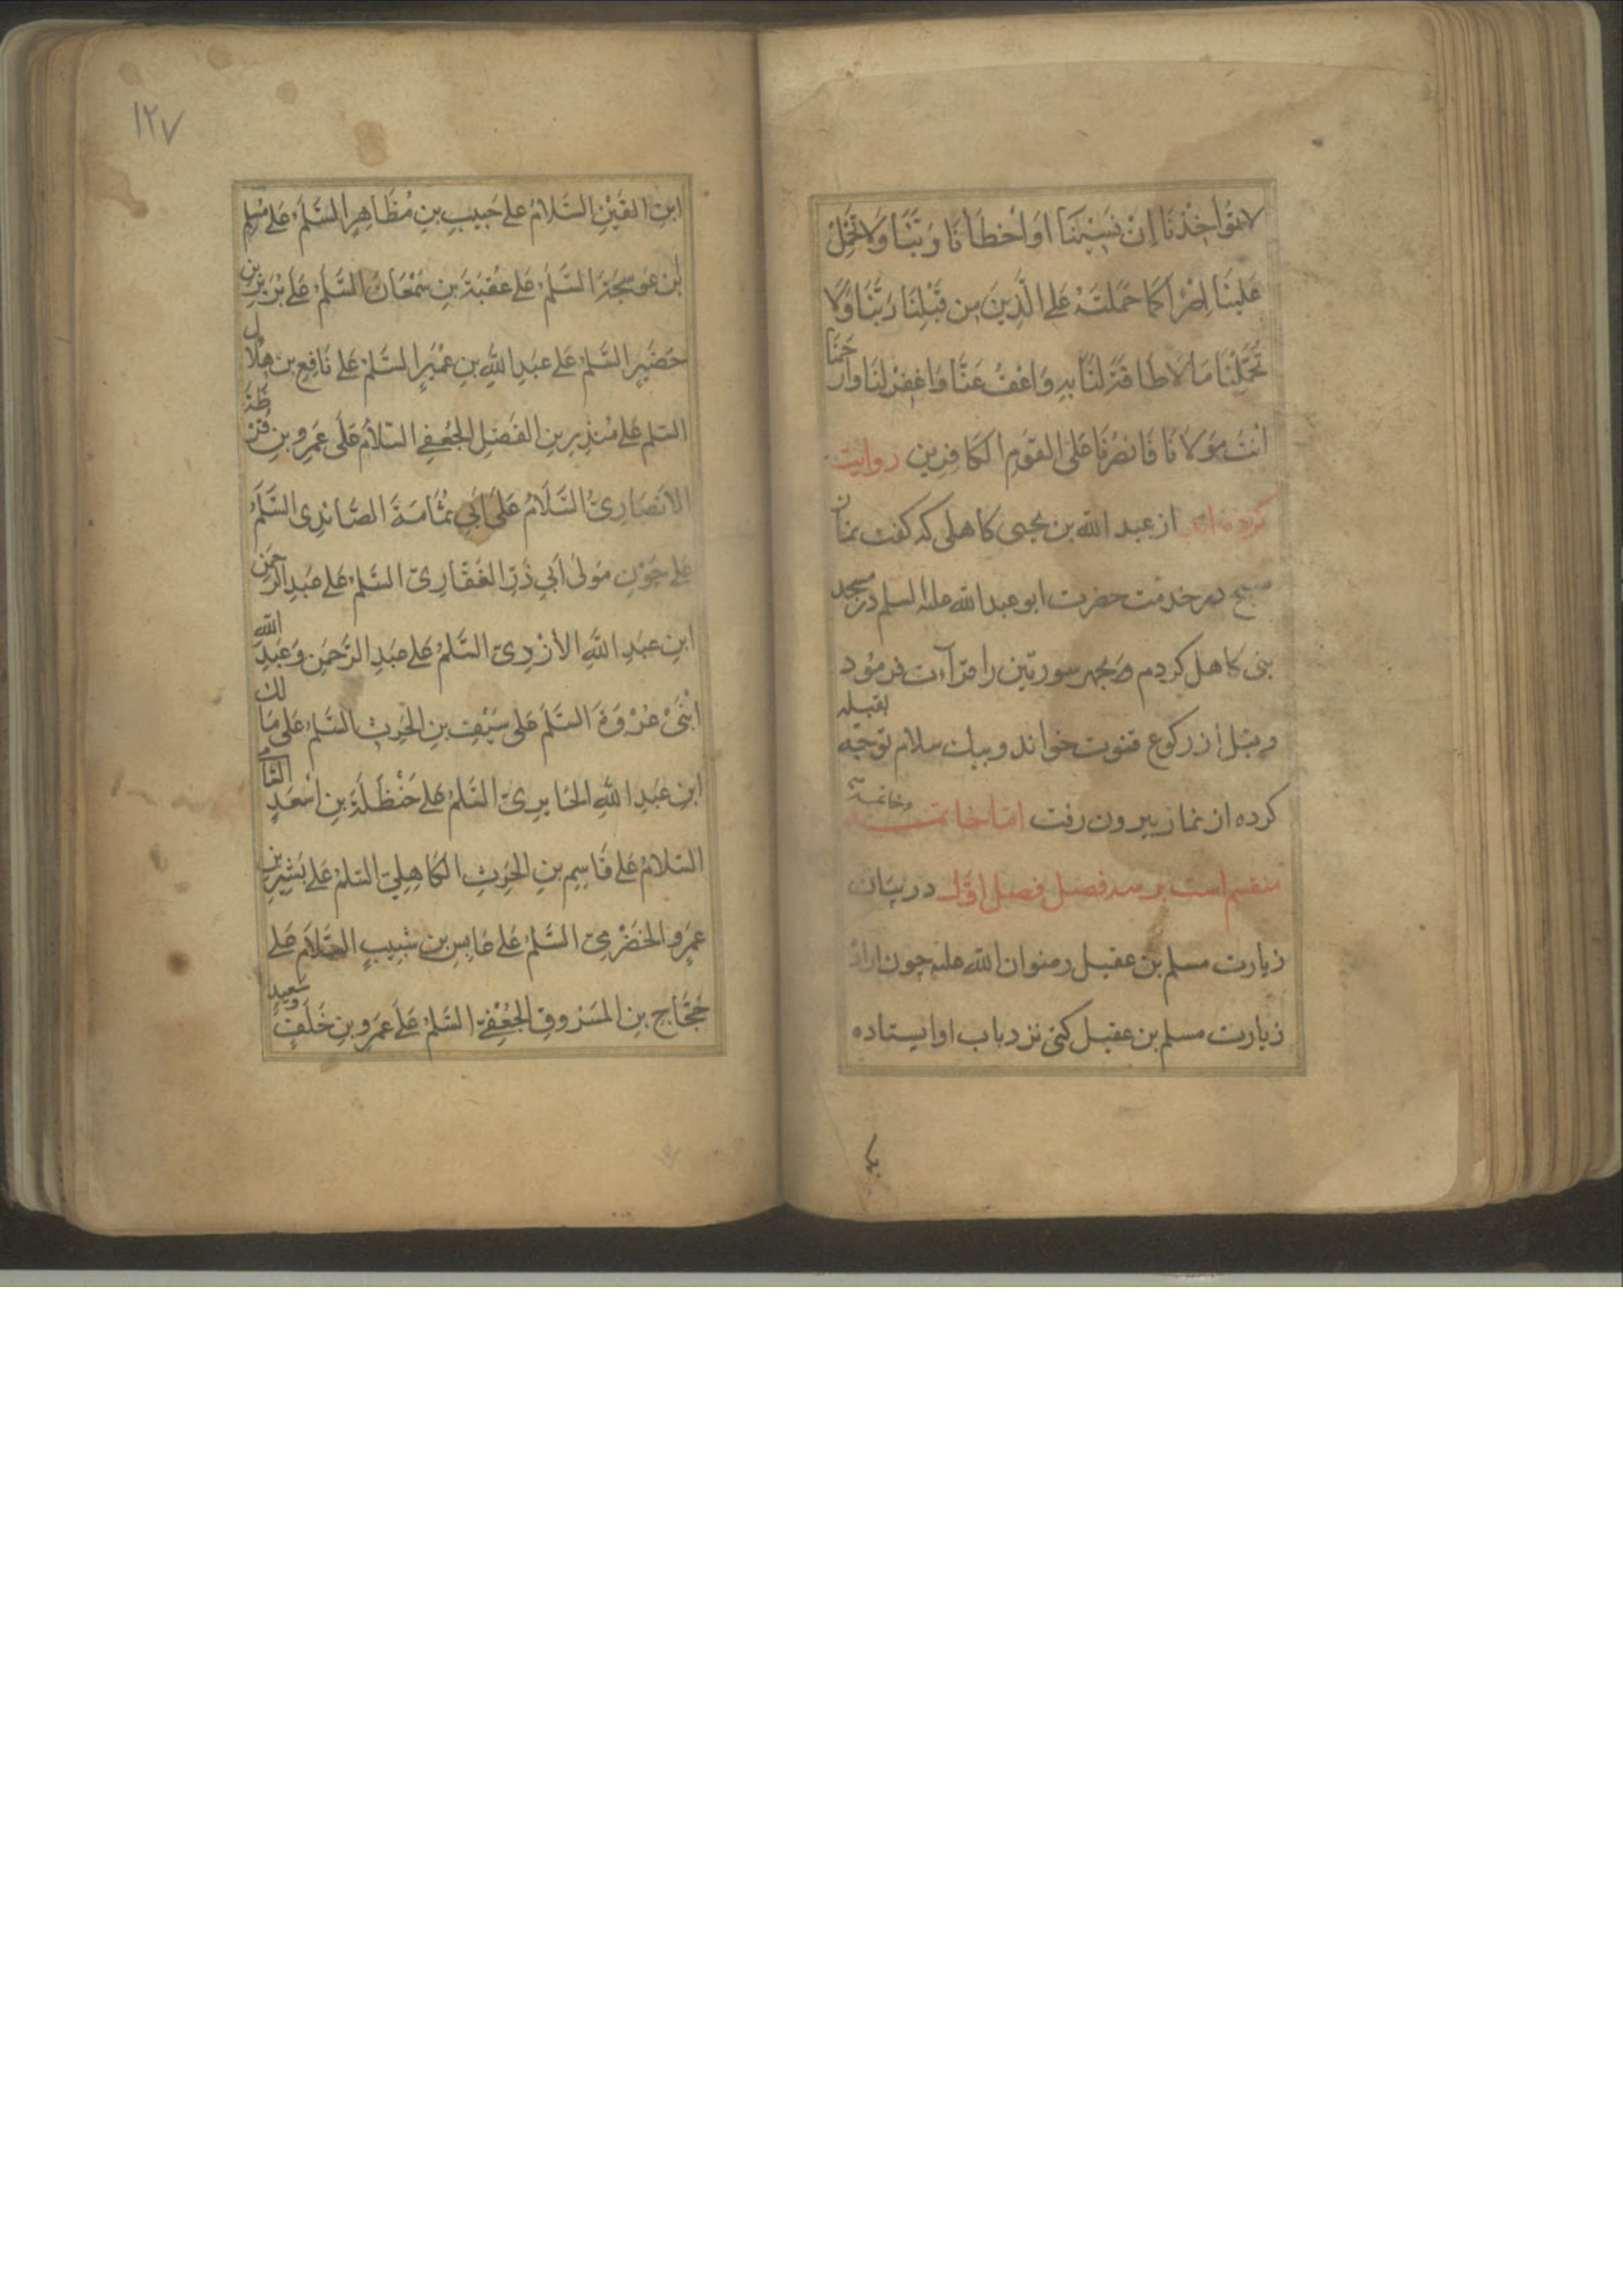 لا تؤاخِذْنَا اِنْ نَسِيْنَا اَوْ اَخْطَأنَا رَبَّنَا وَلا تَحْمِلْ
عَلَيْنَا اِصْرًا كَمَا حَمَلْتَهُ عَلَى الَّذِينَ مِن قَبْلِنَا رَبَّنَا وَلَا
تُحَمِّلْنَا مَا لَا طَاقَةَ لَنَا بِهِ وَاعْفُ عَنَّا وَاغْفِرْ لَنَا وَارْحَمْنَا
اَنْتَ مَوْلَانَا فَانْصُرْنَا عَلَى القَوْمِ الكَافِرِينَ روایت
کرده اند از عبد الله بن یحیی کاهلی که گفت نماز
صبح در خدمت حضرت ابو عبد الله علیه السلم در مسجد
بنی کاهل کردم و بجهر سورتین را قرآءت فرمود
و قبل از رکوع قنوت خواند و بیک سلام توجّه بقبله
کرده از نماز بیرون رفت امّا خاتمه
منقسم است بر سه فصل فصل اوّل در بیان
زیارت مسلم بن عقیل رضوان الله علیه چون اراد
زیارت مسلم بن عقیل کنی نزد باب او ایستاده
۱۲۷
ابنِ القَيْنِ السَّلامُ عَلى حَبِيبِ بنِ مُظَاهِرٍ السَّلَمُ عَلى مُسْلِمِ
ابْنِ عَوسَجَةَ السَّلَمُ عَلى عُقْبَةَ بنِ سَمْعَانَ السَّلَمُ عَلى بُرَيْرِ بنِ
حَضَيرٍ السَّلمُ عَلى عَبدِ اللهِ بنِ عُمَيرٍ السَّلمُ عَلى نَافِعِ بن هِلَالٍ
السّلم عَلى مُنْذِرِ بنِ الفَضلِ الجُعفِي السّلامُ عَلى عَمرِو بنِ قُرْظَةَ
الاَنْصَارِيّ السَّلَامُ عَلَى اَبِي ثُمَامَةَ الصَّائدِى السَّلَمُ
عَلى جَوْنٍ مَولىٰ اَبي ذَرٍّ الغَفّارِيّ السَّلمُ عَلى عَبدِ الرّحمَنِ
ابنِ عبدِ اللهِ الاَزْدِيّ السَّلمُ عَلى عَبدِ الرَّحمَنِ وَعَبدِ الله
ابْنَىْ عُرْوَةَ السَّلَم عَلى سَيْفِ بنِ الحَرِثِ السَّلمُ عَلى مَالك
ابنِ عَبدِ اللهِ الحَايرِيّ السَّلمُ عَلى حَنْظَلَةَ بنِ اَسْعَدٍ
السّلامُ عَلى قَاسِمِ بنِ الحَرِثِ الكَاهِلِيّ السّلمُ عَلى بَشِيرِ بنِ
عَمرِو الحَضْرَمِيّ السَّلمُ عَلى عَابِسِ بنِ شَبِيبٍ السَّلام عَلى
حَجَّاجِ بنِ المَسْرُوقِ الجُعْفِيّ السَّلمُ عَلَى عَمرِو بنِ خَلَفٍ وسَعِيدٍ